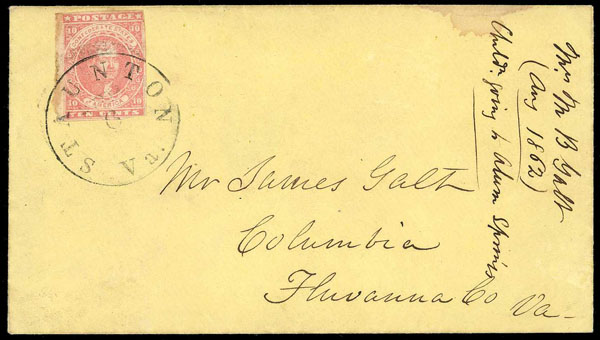 POSTAGE
10 CONFEDERATE STATES 10
10 AMERICA 10
TEN CENTS
STAUNTON Va.
6
Mr James Galt
Columbia
Fluvanna Co Va-
Mrs M B Galt
(Aug 1862)
Childn going to Alum Springs